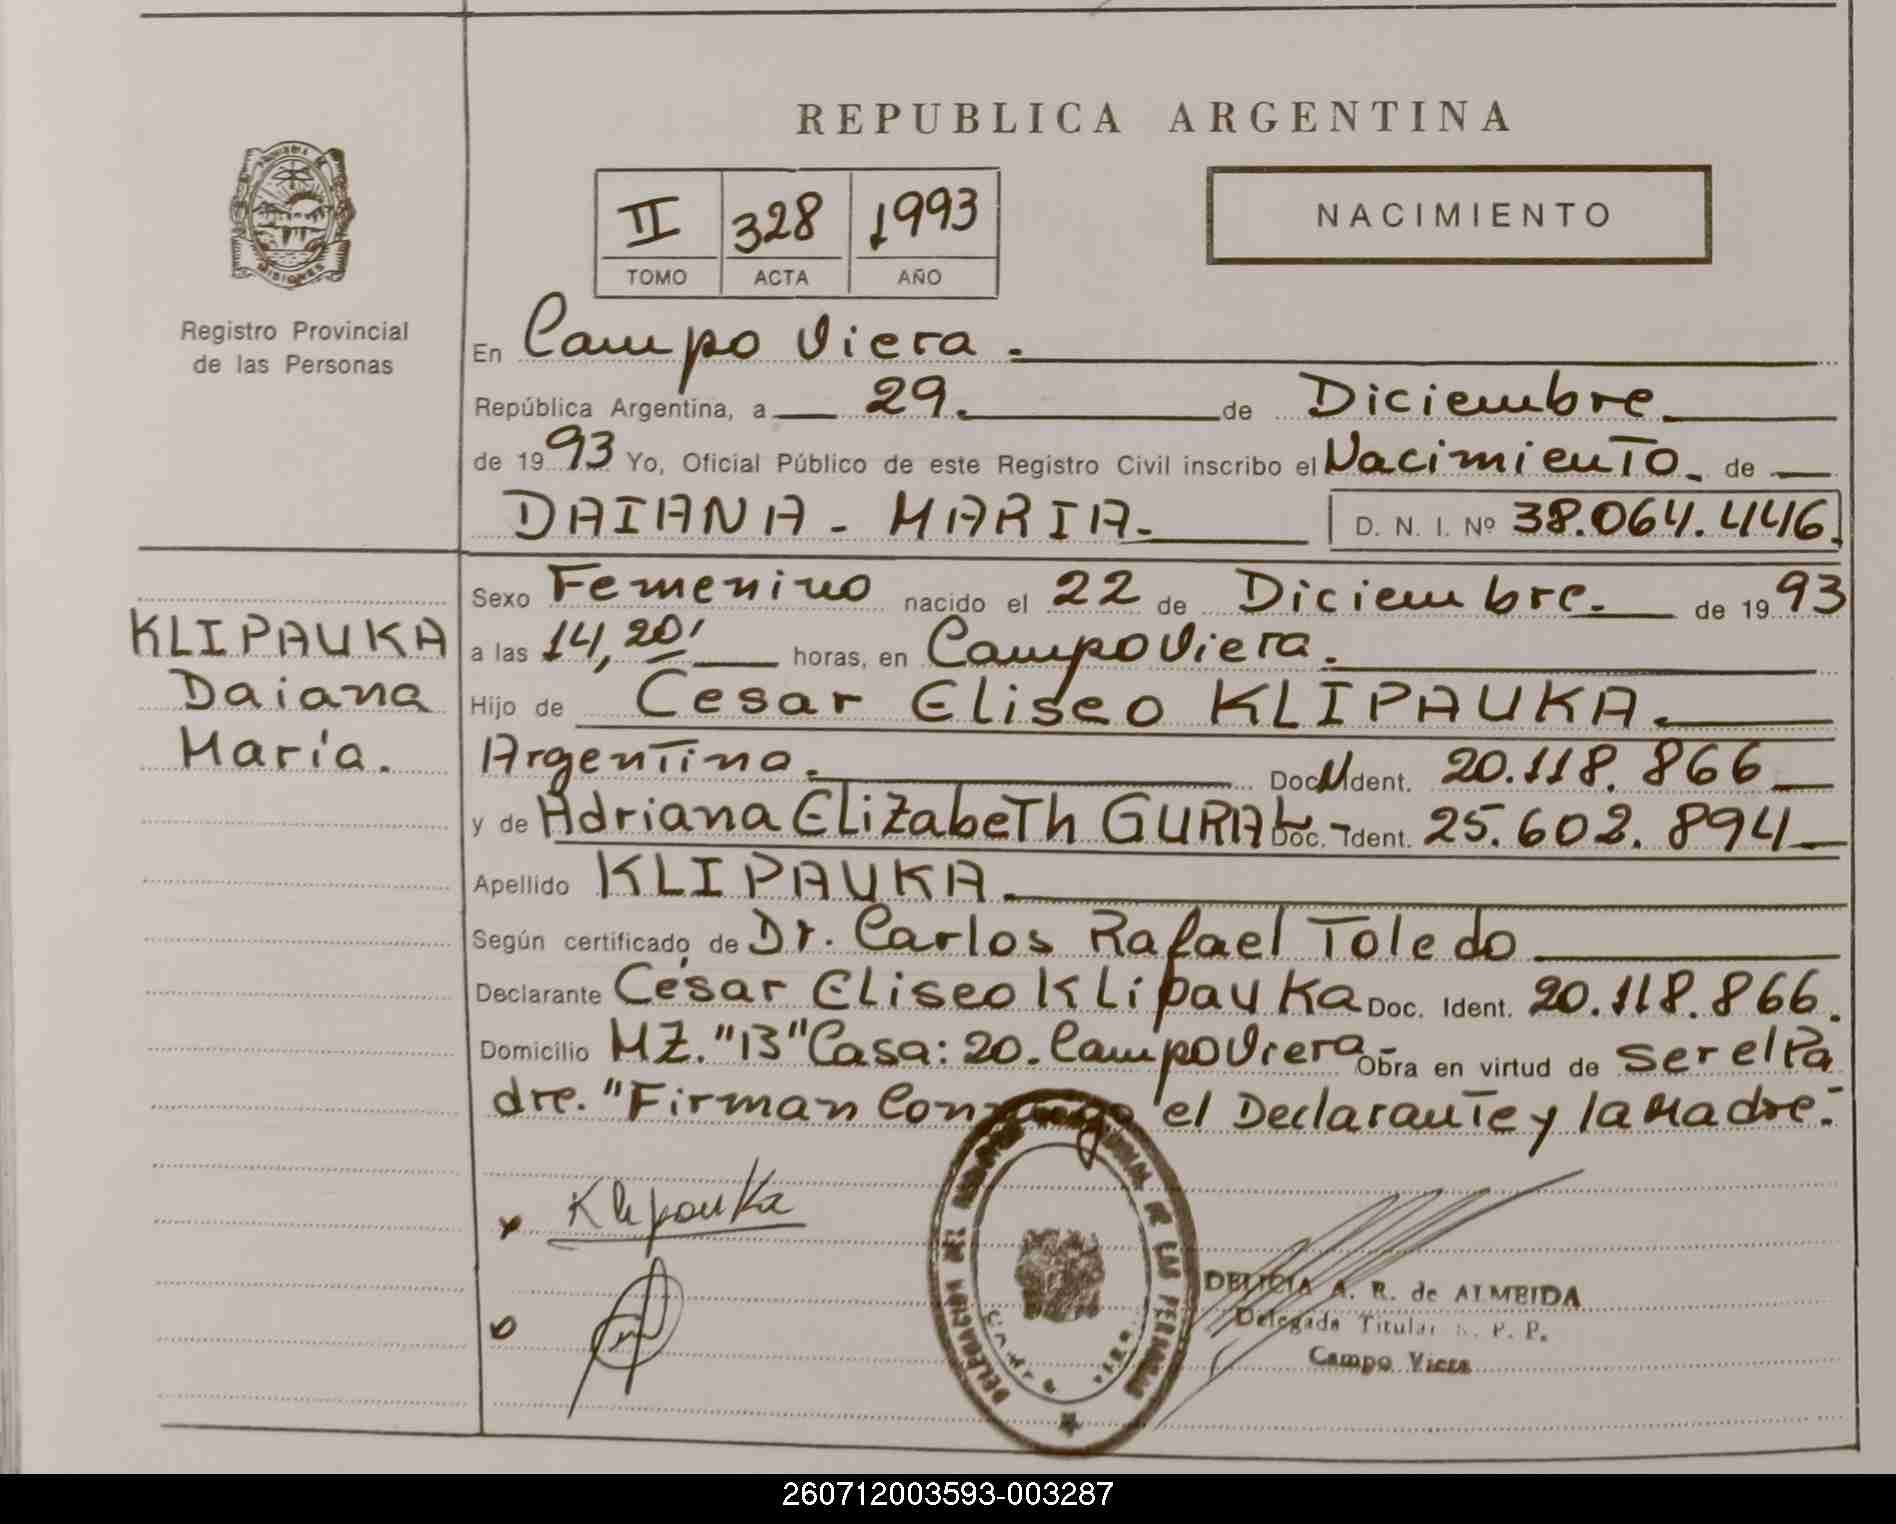 REPUBLICA ARGENTINA
II 328 1993
TOMO ACTA AÑO
NACIMIENTO
MISIONES
Registro Provincial
de las Personas
En Campo Viera.
República Argentina, a 29. de Diciembre
de 1993 Yo, Oficial Público de este Registro Civil inscribo el Nacimiento de
DAIANA - MARIA. D. N. I. Nº 38.064.446.
KLIPAUKA
Daiana
María.
Sexo Femenino nacido el 22 de Diciembre de 1993
a las 14,20' horas, en Campo Viera.
Hijo de Cesar Eliseo KLIPAUKA.
Argentino. Doc. Ident. 20.118.866
y de Adriana Elizabeth GURAL Doc. Ident. 25.602.894
Apellido KLIPAUKA.
Según certificado de Dr. Carlos Rafael Toledo
Declarante César Eliseo Klipauka Doc. Ident. 20.118.866.
Domicilio MZ. "13" Casa: 20. Campo Viera- Obra en virtud de ser el Pa
dre. "Firman Conmigo el Declarante y la Madre.-
Klipauka
DELEGACIÓN DEL DE LAS PERSONAS
DELICIA A. R. de ALMEIDA
Delegada Titular R. P. P.
Campo Viera
260712003593-003287